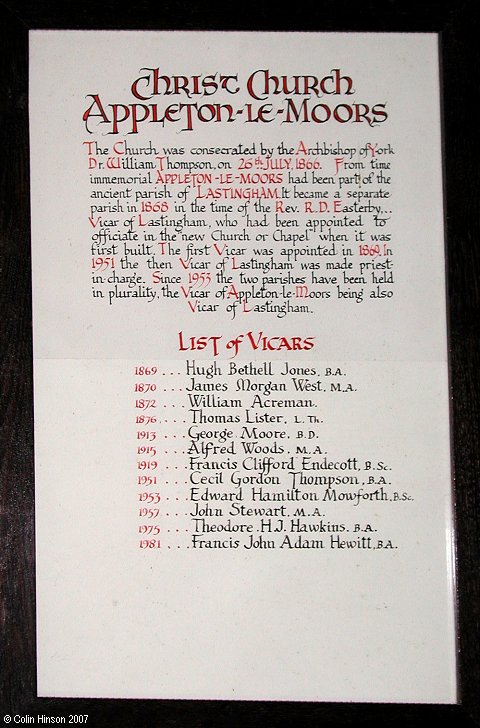 Christ Church
Appleton-le-Moors
The Church was consecrated by the Archbishop of York
Dr. William Thompson, on 26th JULY, 1866. From time
immemorial APPLETON-LE-MOORS had been part of the
ancient parish of LASTINGHAM. It became a separate
parish in 1868 in the time of the Rev. R.D. Easterby,..
Vicar of Lastingham, who had been appointed to
officiate in the new Church or Chapel when it was
first built. The first Vicar was appointed in 1869. In
1951 the then Vicar of Lastingham was made priest-
in-charge. Since 1953 the two parishes have been held
in plurality, the Vicar of Appleton-le-Moors being also
Vicar of Lastingham.
LIST of VICARS
1869 ... Hugh Bethell Jones, B.A.
1870 ... James Morgan West, M.A.
1872 ... William Acreman.
1876 ... Thomas Lister, L. Th.
1913 ... George Moore, B.D.
1915 ... Alfred Woods, M.A.
1919 ... Francis Clifford Endecott, B.Sc.
1951 ... Cecil Gordon Thompson, B.A.
1953 ... Edward Hamilton Mowforth, B.Sc.
1957 ... John Stewart, M.A.
1975 ... Theodore H.J. Hawkins, B.A.
1981 ... Francis John Adam Hewitt, B.A.
© Colin Hinson 2007